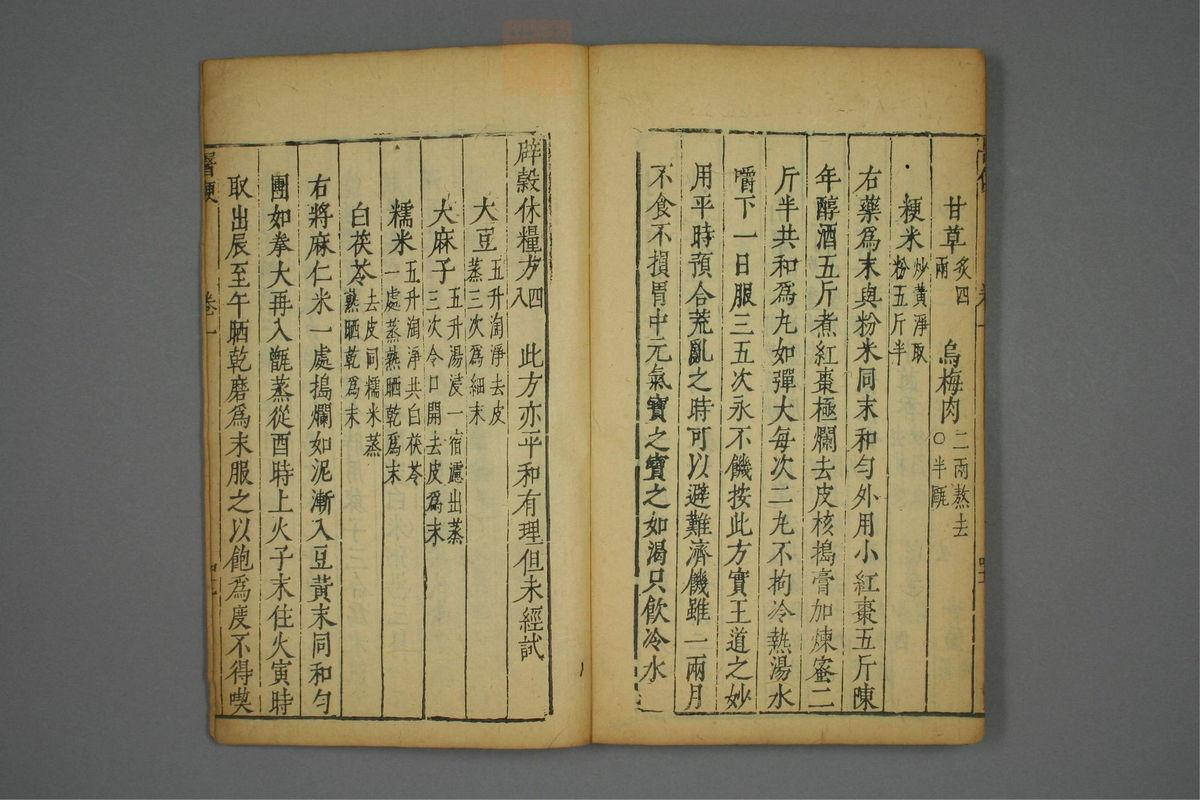 甘草炙四兩 烏梅肉二兩熬去〇半甌
粳米炒黃淨取粉五斤半
右藥爲末與粉米同末和勻外用小紅棗五斤陳
年醇酒五斤煮紅棗極爛去皮核搗膏加煉蜜二
斤半共和爲丸如彈大每次二丸不拘冷熱湯水
嚼下一日服三五次永不饑按此方實王道之妙
用平時預合荒亂之時可以避難濟饑雖一兩月
不食不損胃中元氣寶之寶之如渴只飲冷水
辟穀休糧方四八 此方亦平和有理但未經試
大豆五升淘淨去皮蒸三次爲細末
大麻子五升湯浸一宿濾出蒸三次令口開去皮爲末
糯米五升淘淨共白茯苓一處蒸熟晒乾爲末
白茯苓去皮同糯米蒸熟晒乾爲末
右將麻仁米一處搗爛如泥漸入豆黃末同和勻
團如拳大再入甑蒸從酉時上火子末住火寅時
取出辰至午晒乾磨爲末服之以飽爲度不得喫
醫便 卷一